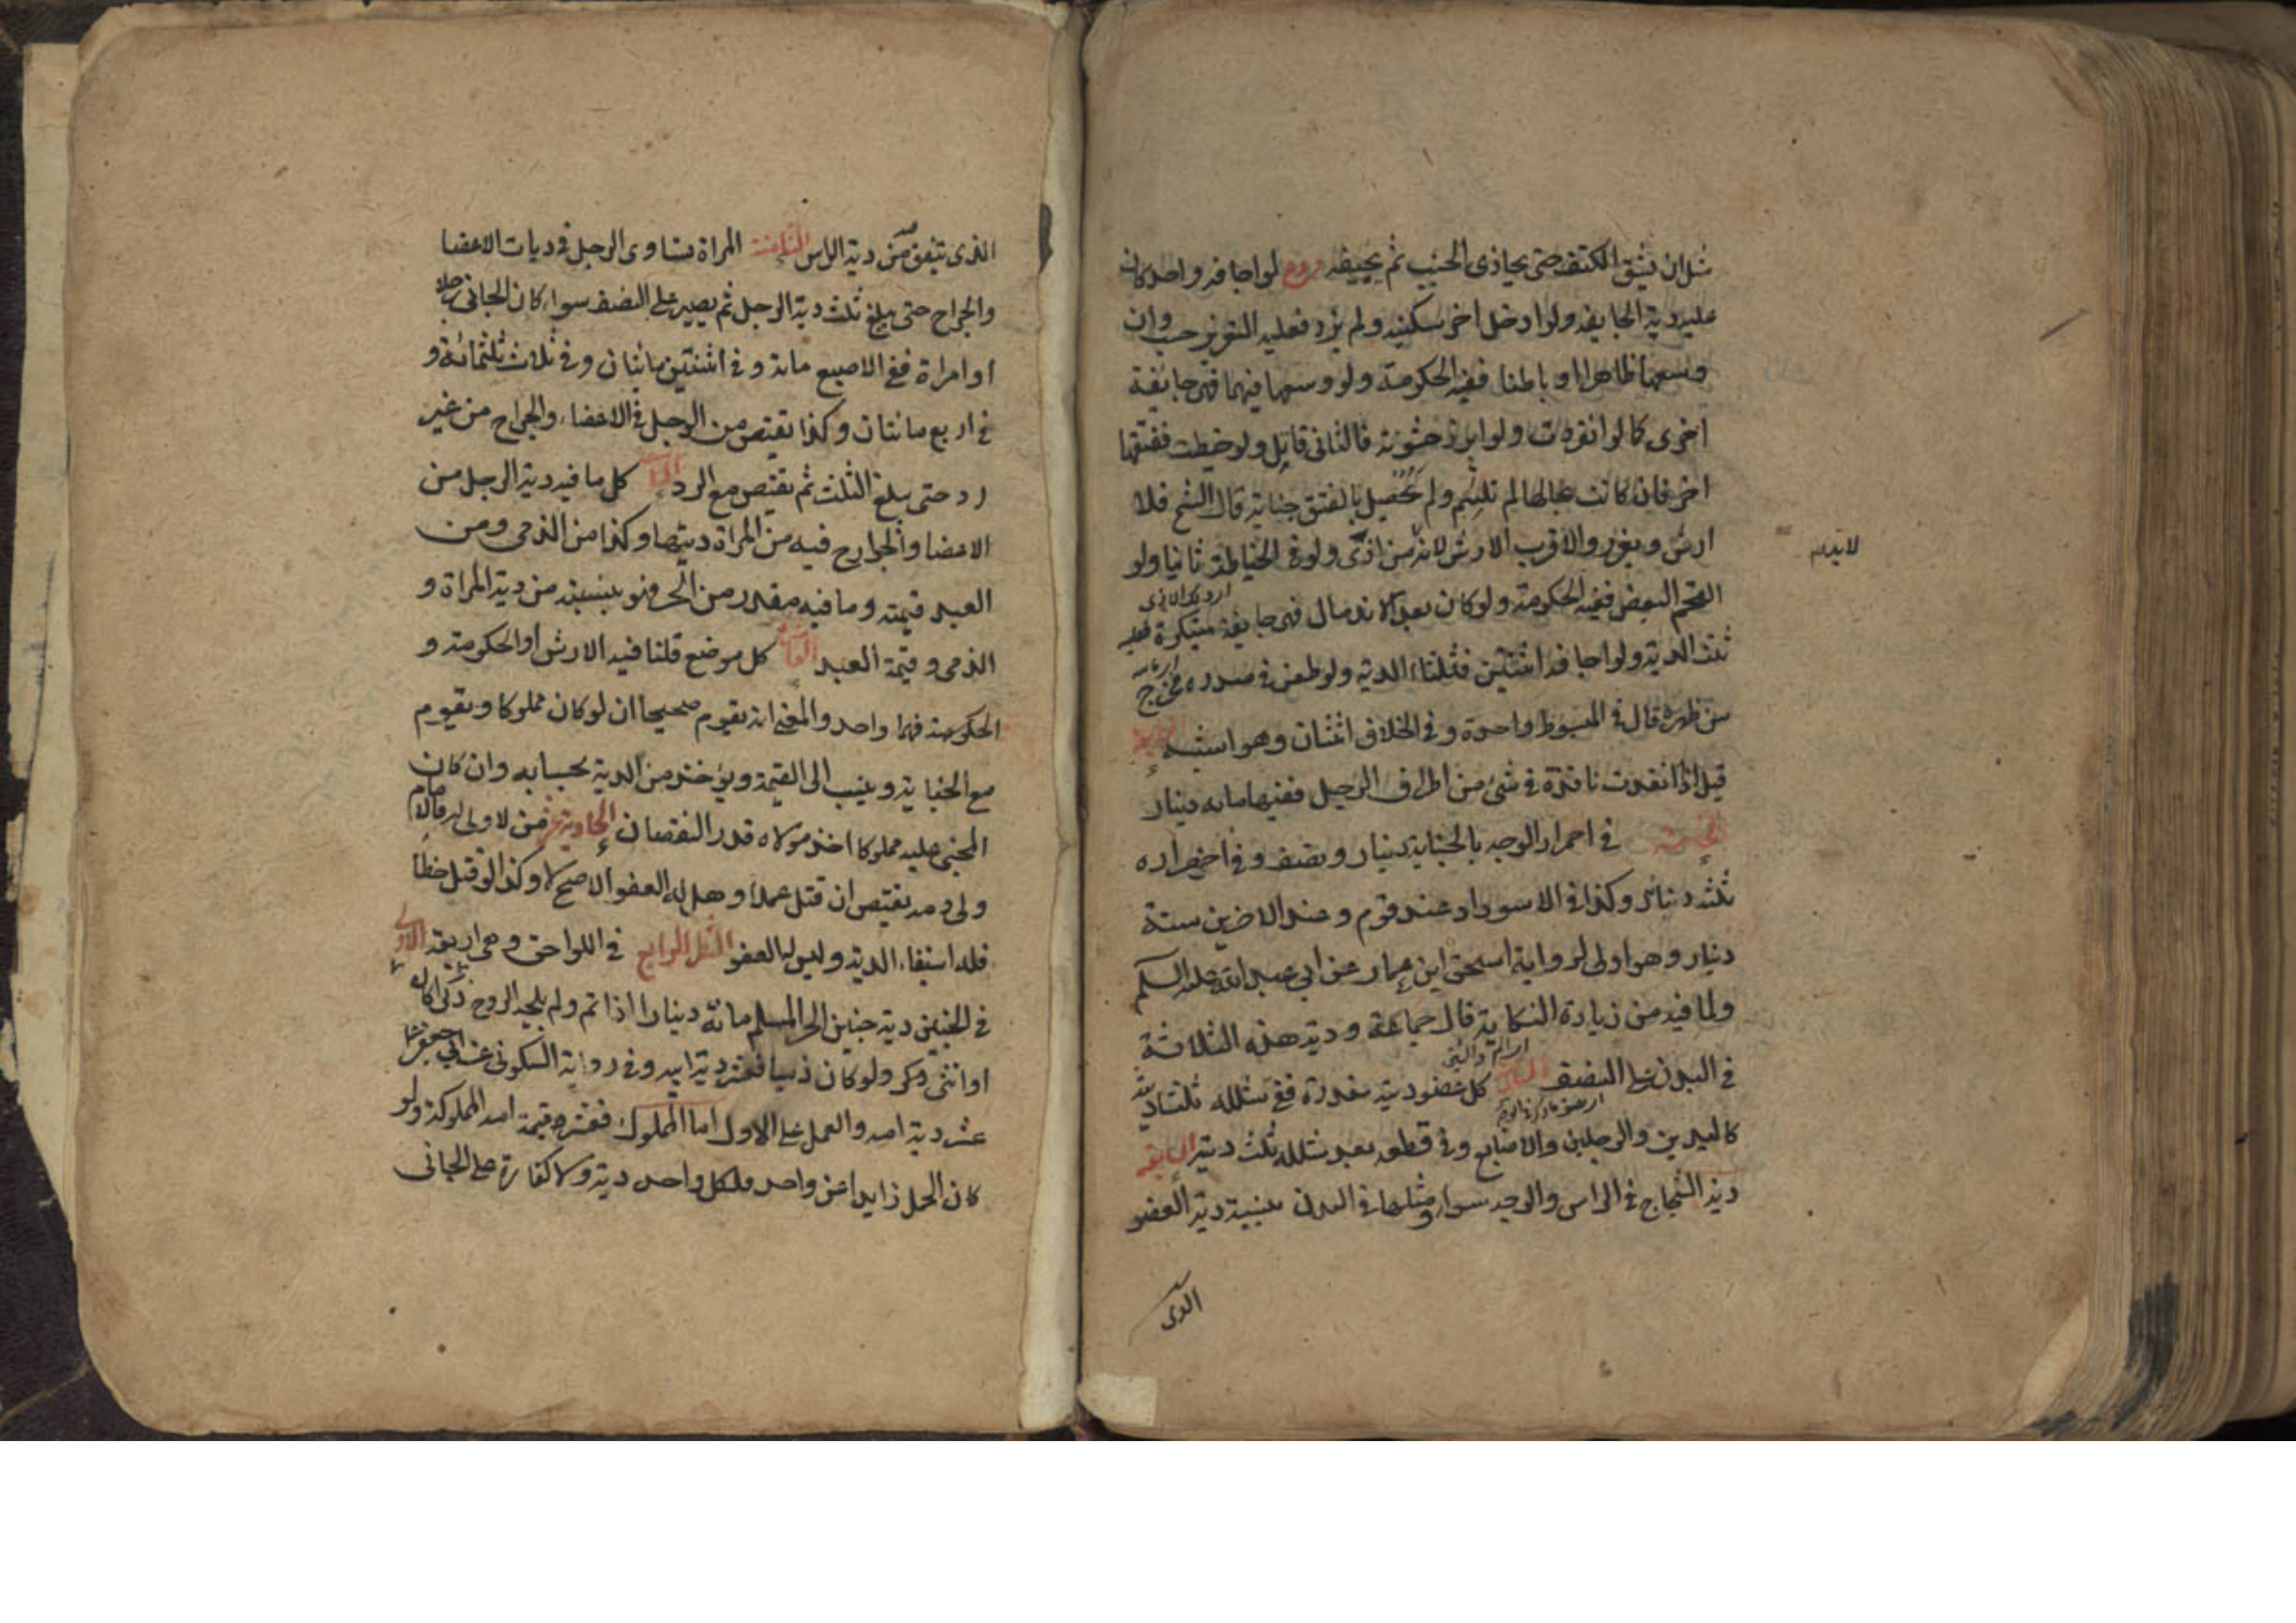 مثل ان يشق الكتف حتى يحاذى الجنب ثم يجيفه فروع لو اجافه واحد كان
عليه دية الجايفة ولو ادخل اخر سكينه ولم يزد فعليه التعزير حسب وان
وسعها ظاهرا او باطنا ففيه الحكومة ولو وسعها فيهما فهى جايفة
اخرى كما لو انفردت ولو ابرز حشوته فالثانى قاتل ولو خيطت ففتقها
اخر فان كانت بحالها لم تلتئم ولم تحصل بالفتق جناية قال الشيخ فلا
ارش ويعزر والاقرب الارش لانه لا بد من اذى ولو فى الخياطة ثانيا ولو
التحم البعض ففيه الحكومة ولو كان بعد الاندمال فهى جايفة مبتكرة فعليه
ثلث الدية ولو اجافه اثنتين فثلثا الدية ولو طعن فى صدره فخرج
من ظهره قال فى المبسوط واحدة وفى الخلاف اثنتان وهو اشبه الرابعة
قيل اذا نفذت نافذة فى شئ من اطراف الرجل ففيها مائه دينار
الخامسة فى احمرار الوجه بالجناية دينار ونصف وفى اخضراره
ثلثه دنانير وكذا فى الاسوداد عند قوم وعند الاخرين ستة
دنانير وهو اولى لرواية اسحق ابن عمار عن ابى عبد الله عليه السلم
ولما فيه من زيادة النكاية قال جماعة ودية هذه الثلاثة
فى البدن على النصف السادسة كل عضو ديته مقدرة ففى شلله ثلثا ديته
كاليدين والرجلين والاصابع وفى قطعه بعد شلله ثلث ديته السابعة
دية الشجاج فى الراس والوجه سواء ومثلها فى البدن بنسبة دية العضو
الذى
الذى يتفق من دية الراس الثامنة المراة تساوى الرجل فى ديات الاعضا
والجراح حتى يبلغ ثلث دية الرجل ثم يصير على النصف سواء كان الجانى رجلا
او امراة ففى الاصبع مائة وفى اثنتين مائتان وفى ثلاث ثلثمائة و
فى اربع مائتان وكذا يقتص من الرجل فى الاعضاء والجراح من غير
رد حتى يبلغ الثلث ثم يقتص مع الرد التاسعة كل ما فيه دية الرجل من
الاعضا والجراح فيه من المراة ديتها وكذا من الذمى ومن
العبد قيمته وما فيه مقدر من الحر فهو بنسبته من دية المراة و
الذمى وقيمة العبد العاشرة كل موضع قلنا فيه الارش او الحكومة و
الحكومة فهما واحد والمعنى انه يقوم صحيحا ان لو كان مملوكا ويقوم
مع الجناية وينسب الى القيمة ويؤخذ من الدية بحسابه وان كان
المجنى عليه مملوكا اخذ مولاه قدر النقصان الحادية عشر من لا ولى له فالامام
ولى دمه يقتص ان قتل عمدا وهل له العفو الاصح لا وكذا لو قتل خطأ
فله استيفاء الدية وليس له العفو النظر الرابع فى اللواحق وهى اربعة الاولى
فى الجنين دية جنين الحر المسلم مائة دينار اذا تم ولم يلجه الروح ذكرا كان
او انثى ولو كان ذميا فعشر دية ابيه وفى رواية السكونى عن ابى جعفر
عشر دية امه والعمل على الاول اما المملوك فعشر قيمة امه المملوكة ولو
كان الحمل زايدا عن واحد فلكل واحد دية ولا كفارة على الجانى